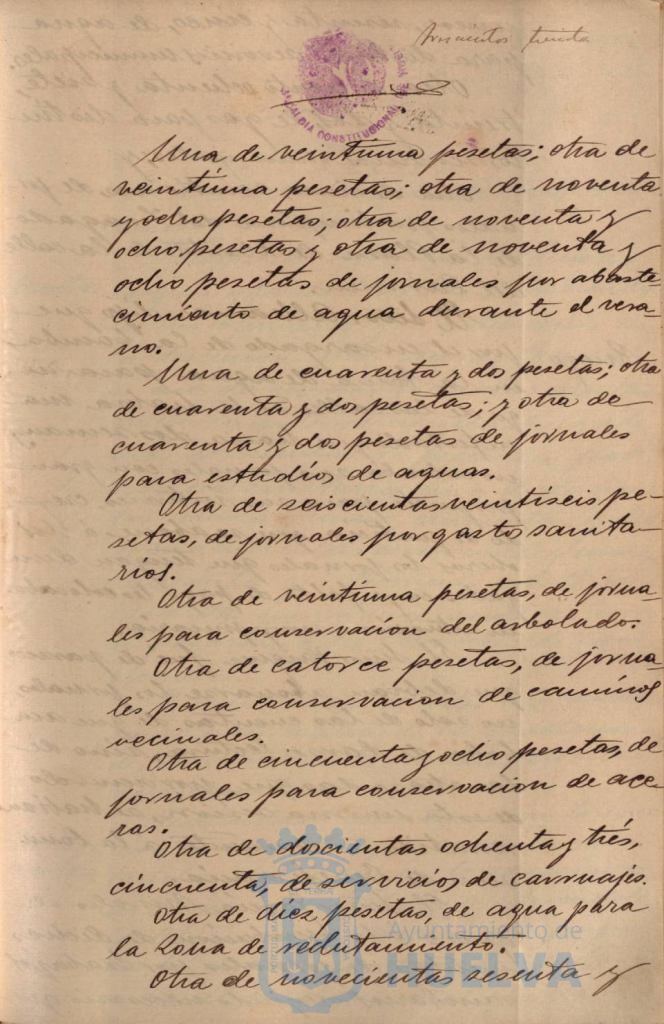 trescientos treinta
ALCALDIA CONSTITUCIONAL DE HUELVA
Una de veintiuna pesetas; otra de
veintiuna pesetas; otra de noventa
y ocho pesetas; otra de noventa y
ocho pesetas y otra de noventa y
ocho pesetas de jornales por abaste-
cimiento de agua durante el vera-
no.
Una de cuarenta y dos pesetas; otra
de cuarenta y dos pesetas; y otra de
cuarenta y dos pesetas de jornales
para estudios de aguas.
Otra de seiscientas veintiseis pe-
setas, de jornales por gastos sanita-
rios.
Otra de veintiuna pesetas, de jorna-
les para conservación del arbolado.
Otra de catorce pesetas, de jorna-
les para conservacion de caminos
vecinales.
Otra de cincuenta y ocho pesetas, de
jornales para conservacion de ace-
ras.
Otra de doscientas ochenta y trés,
cincuenta, de servicios de carruajes.
Otra de diez pesetas, de agua para
la Zona de reclutamiento.
Otra de novecientas sesenta y
Ayuntamiento de
HUELVA